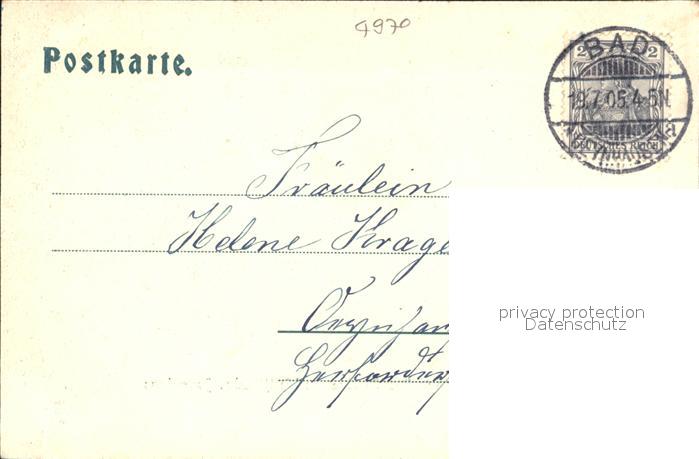 4970
Postkarte.
BAD
19.7.05.4-5N
OEYNHAUSEN
2 2
DEUTSCHES REICH
Fräulein
Helene Krage
Oeynhau
Herforder
privacy protection
Datenschutz